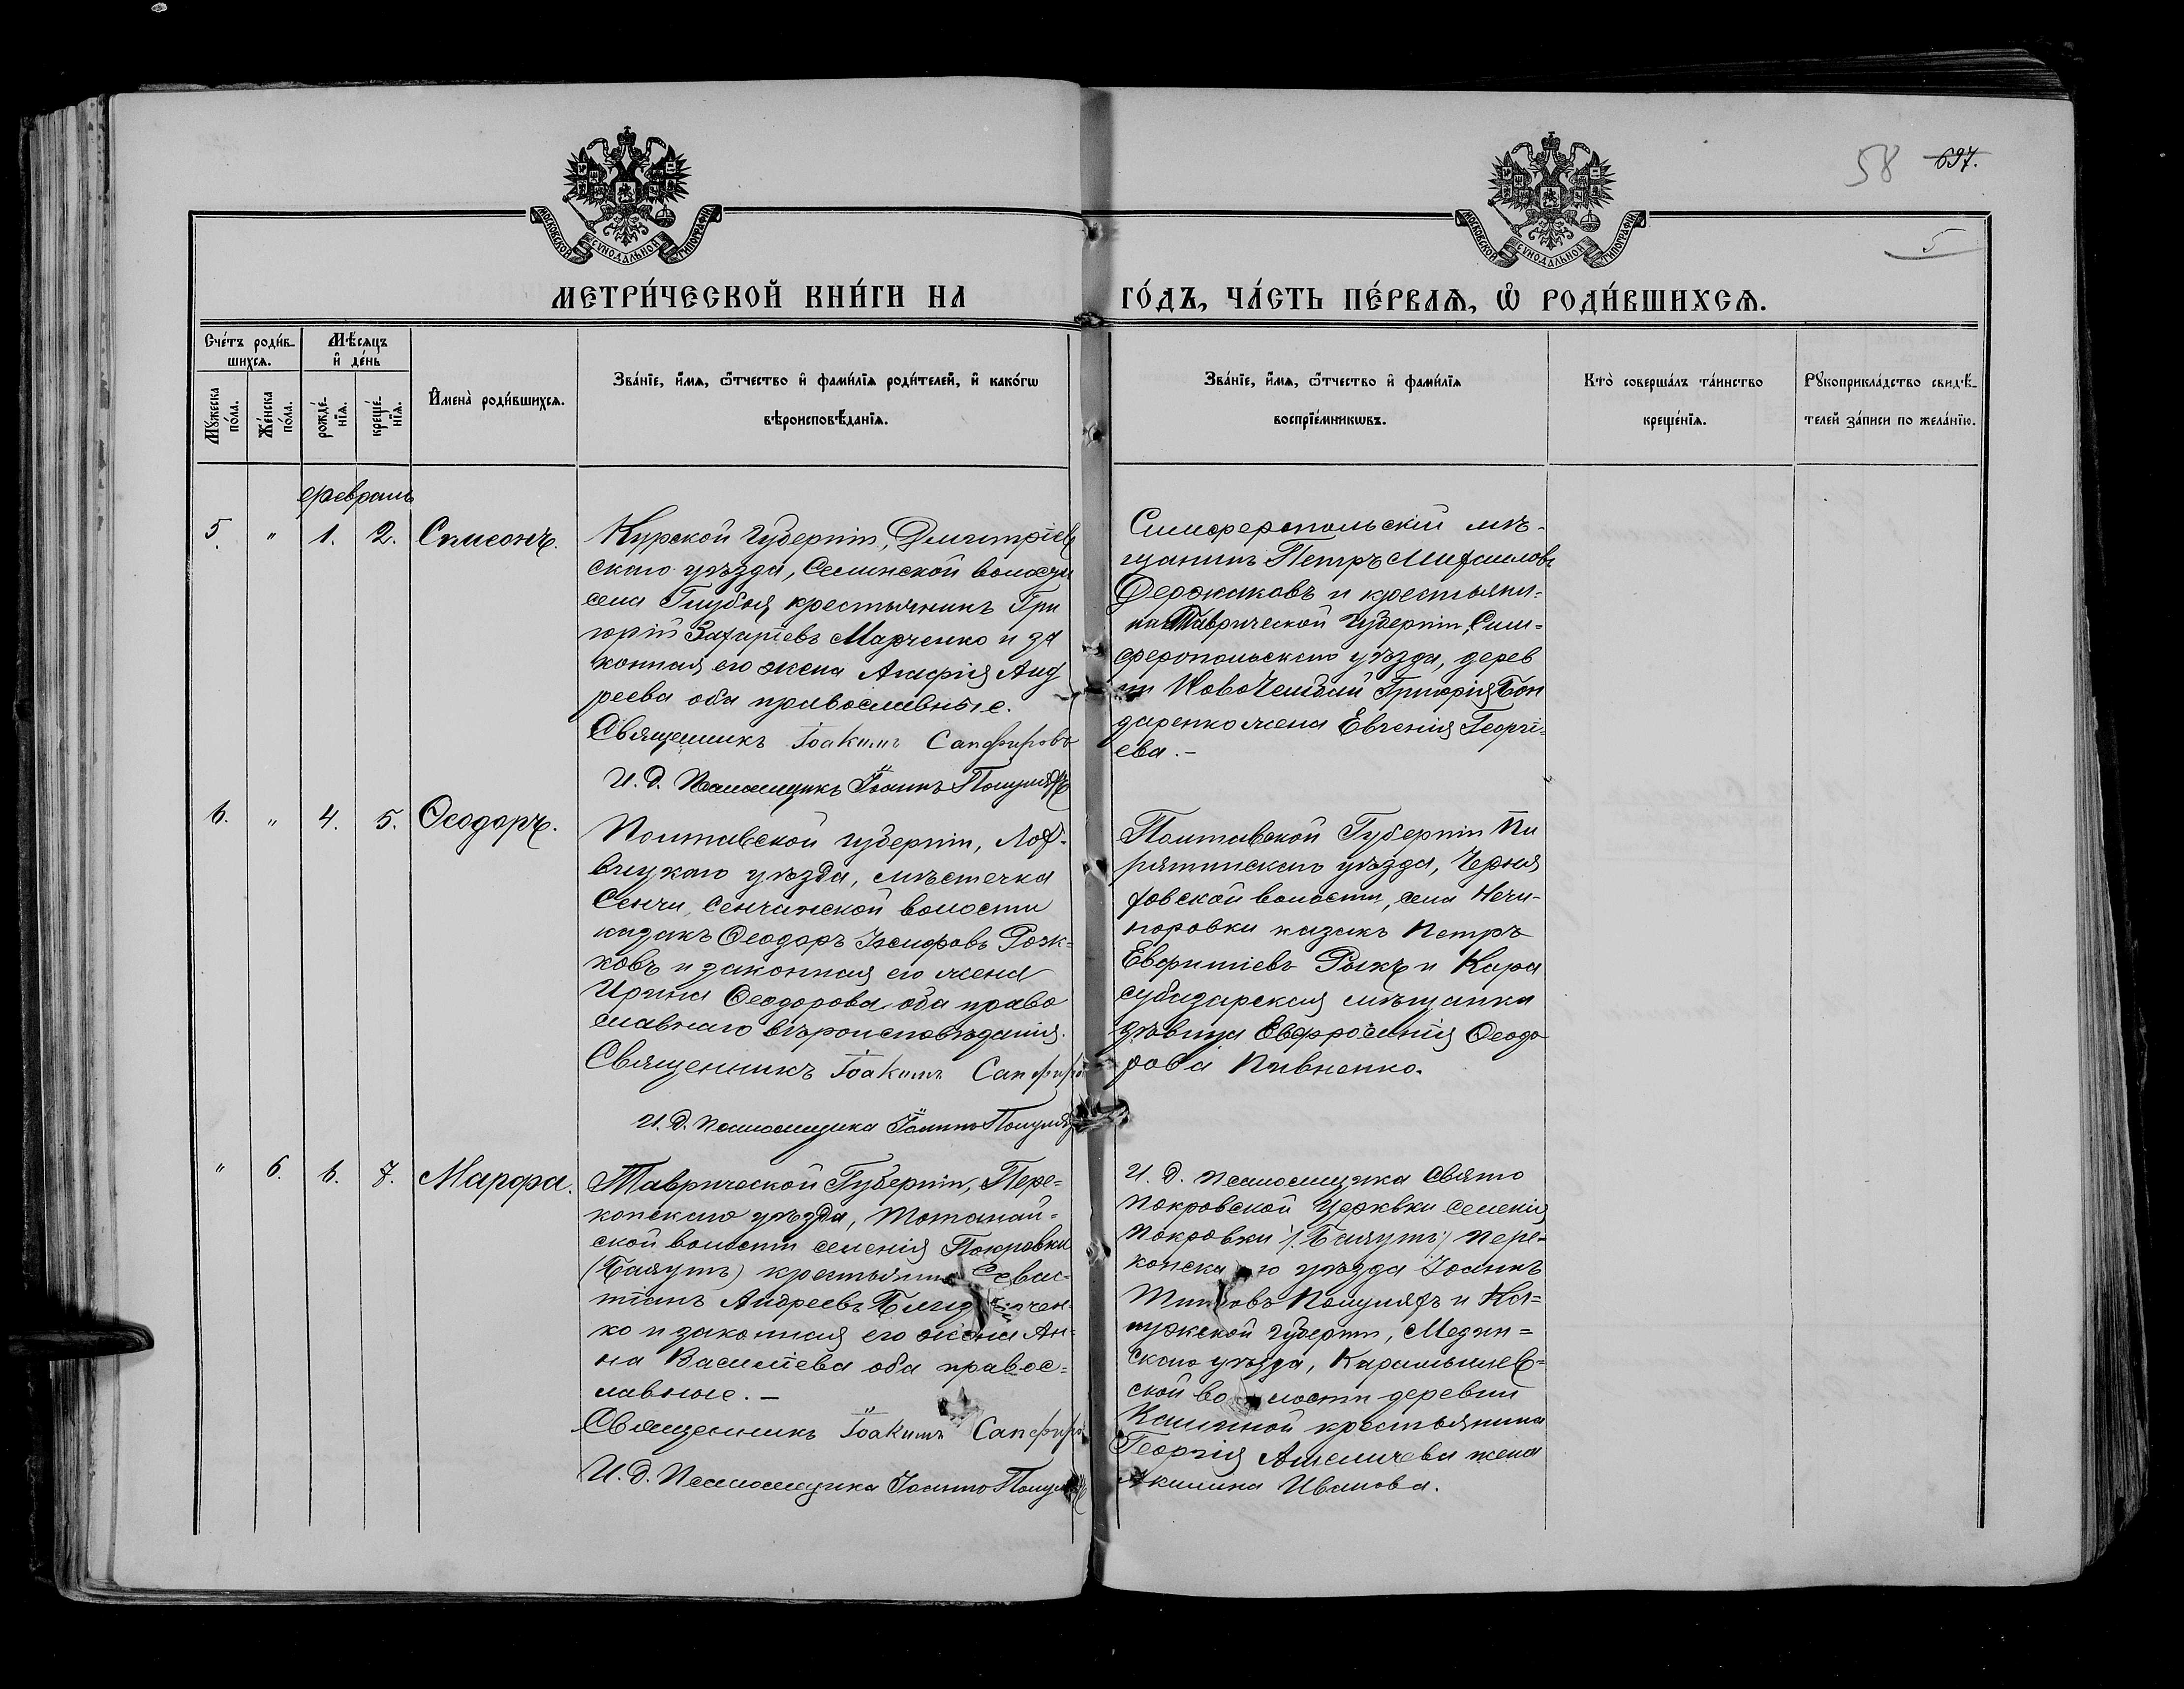 58 697.
5
МОСКОВСКОЙ СѴНОДАЛЬНОЙ ТИПОГРАФІИ
МОСКОВСКОЙ СѴНОДАЛЬНОЙ ТИПОГРАФІИ
МЕТРИ́ЧЕСКОЙ КНИ́ГИ НА ГО́ДЪ, ЧА́СТЬ ПЕ́РВАѦ, Ѽ РОДИ́ВШИХСѦ.
Сче́тъ роди́в-
шихсѧ.
Мѣ́сѧцъ
и҆ де́нь
Мꙋ́жеска
по́ла.
Же́нска
по́ла.
рожде́-
нїѧ.
креще́-
нїѧ.
И҆мена̀ роди́вшихсѧ.
Зва́нїе, и҆́мѧ, ѻ҆́тчество и҆ фами́лїѧ роди́телей, и҆ како́гѡ
вѣроисповѣ́данїѧ.
Зва́нїе, и҆́мѧ, ѻ҆́тчество и҆ фами́лїѧ
воспрїе́мникѡвъ.
Кто̀ соверша́лъ та́инство
креще́нїѧ.
Рꙋкоприкла́дство свидѣ́-
телей за́писи по жела́нїю.
февраль
5. " 1. 2. Симеонъ.
Курской губерніи, Димитріев
скаго уѣзда, Селинской волости
села Глубья крестьянинъ Гри
горій Захаріевъ Марченко и за
конная его жена Агафія Анд
реева оба православные.
Священникъ Іоакимъ Сапфировъ
И. д. Псаломщикъ Іоаннъ Полулях
Симферопольскій мѣ-
щанинъ Петръ Михаиловъ
Держаковъ и крестьяни-
на Таврической губерніи, Сим-
феропольскаго уѣзда, дерев
ни Григорія Бон
даренко жена Евгенія Георгі-
ева. -
6. " 4. 5. Ѳеодоръ.
Полтавской губерніи, Лох-
вицкаго уѣзда, мѣстечка
Сенчи, Сенчанской волости
казакъ Ѳеодоръ Іосифовъ Рож-
ковъ и законная его жена
Ирина Ѳеодорова оба право
славнаго вѣроисповѣданія.
Священникъ Іоакимъ Сапфиро
И. д. Псаломщика Іоаннъ Полулях
Полтавской Губерніи Пи
рятинскаго уѣзда, Черня
ховской волости, села Нечи-
поровки казакъ Петръ
Евфиміевъ Рыкъ и Кара
субазарская мѣщанка
дѣвица Евфросинія Ѳеодо
рова Пивненко.
" 6. 6. 7. Марфа.
Таврической Губерніи, Пере-
копскаго уѣзда, Тотанай-
ской волости селенія Покровки
(Баяутъ) крестьянинъ Севас-
тіанъ Андреевъ
ко и законная его жена Ан-
на Василіева оба правос-
лавные. -
Священникъ Іоакимъ Сапфиро
И. д. Псаломщика Іоаннъ Полулях
И. д. псаломщика Свято
Покровской Церквки селенія
Покровки /Баяутъ/ Пере-
копскаго уѣзда Іоаннъ
Титовъ Полуляхъ и Ка-
лужской губерніи, Медын-
скаго уѣзда, Карамышев-
ской волости деревни
крестьянина
Георгія Амеличева жена
Акилина Иванова.